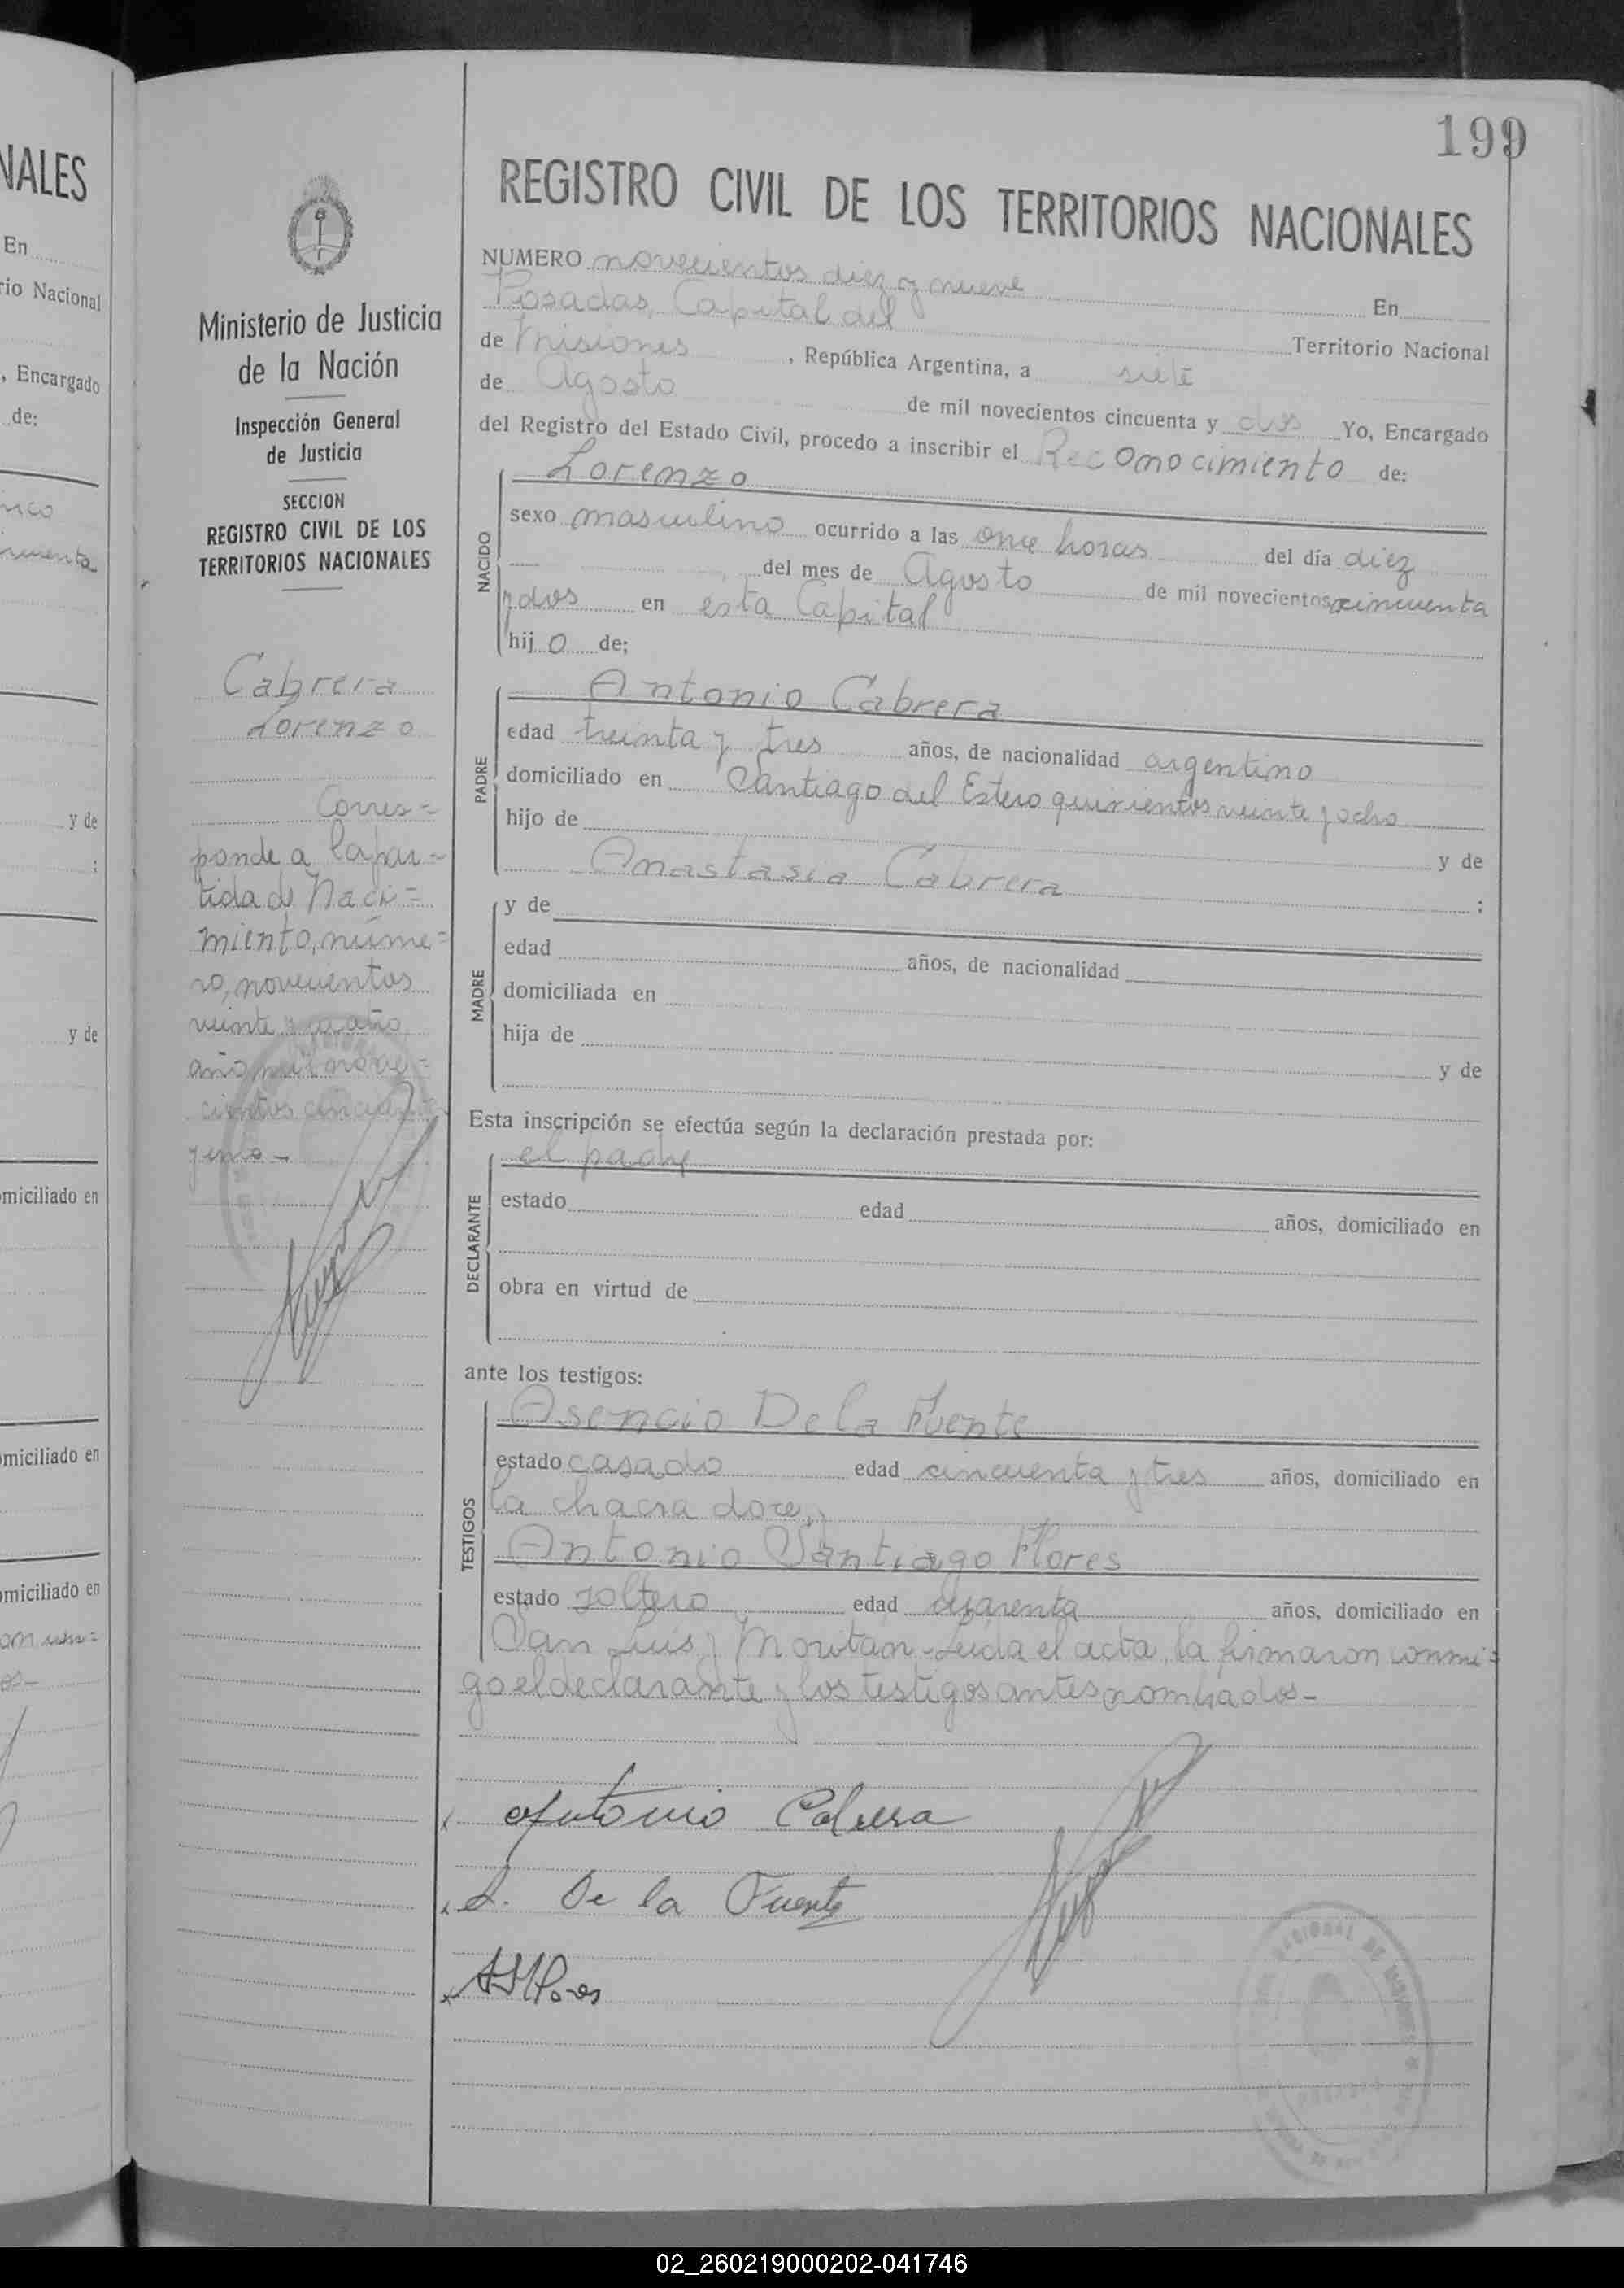 199
NALES
En
rio Nacional
, Encargado
de:
y de
;
y de
miciliado en
omiciliado en
omiciliado en
Ministerio de Justicia
de la Nación
Inspección General
de Justicia
SECCION
REGISTRO CIVIL DE LOS
TERRITORIOS NACIONALES
Cabrera
Lorenzo
Corres=
ponde a la par=
tida de Naci=
miento, núme=
ro, novecientos
veinte y
año mil nove=
cientos cincuenta
y
REGISTRO CIVIL DE LOS TERRITORIOS NACIONALES
NUMERO novecientos diez y nueve En
Posadas, Capital del Territorio Nacional
de Misiones , República Argentina, a siete
de Agosto de mil novecientos cincuenta y dos Yo, Encargado
del Registro del Estado Civil, procedo a inscribir el Reconocimiento de:
NACIDO
Lorenzo
sexo masculino ocurrido a las once horas del día diez
del mes de Agosto de mil novecientos cincuenta
y dos en esta Capital
hij o de;
PADRE
Antonio Cabrera
edad treinta y tres años, de nacionalidad argentino
domiciliado en Santiago del Estero quinientos veinte y ocho
hijo de y de
Anastasia Cabrera ;
MADRE
y de
edad años, de nacionalidad
domiciliada en
hija de y de
Esta inscripción se efectúa según la declaración prestada por:
DECLARANTE
el padre
estado edad años, domiciliado en
obra en virtud de
ante los testigos:
TESTIGOS
Asencio De la Fuente
estado casado edad cincuenta y tres años, domiciliado en
la chacra doce, y
Antonio Santiago Flores
estado soltero edad cuarenta años, domiciliado en
San Luis y Moritan - Leida el acta, la firmaron conmi=
go el declarante y los testigos antes nombrados -
Antonio Cabrera
A. De la Fuente
ASFlores
02_260219000202-041746